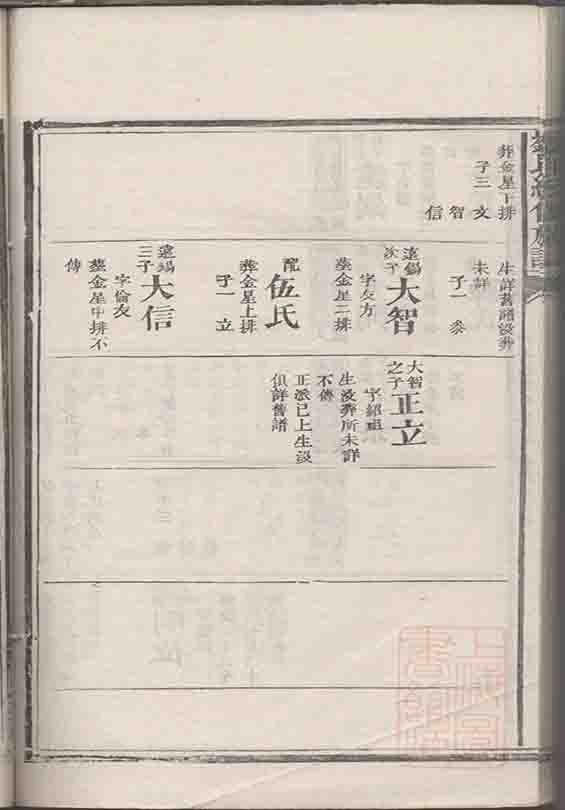 葬金星下排
子三 文
智
信
生詳舊譜沒葬
未詳
子一 叅
遠錫次子 大智
字友方
葬金星二排
配 伍氏
葬金星上排
子一 立
遠錫三子 大信
字倫友
葬金星中排不
傳
大智之子 正立
字紹祖
生沒葬所未詳
不傳
正派已上生沒
俱詳舊譜